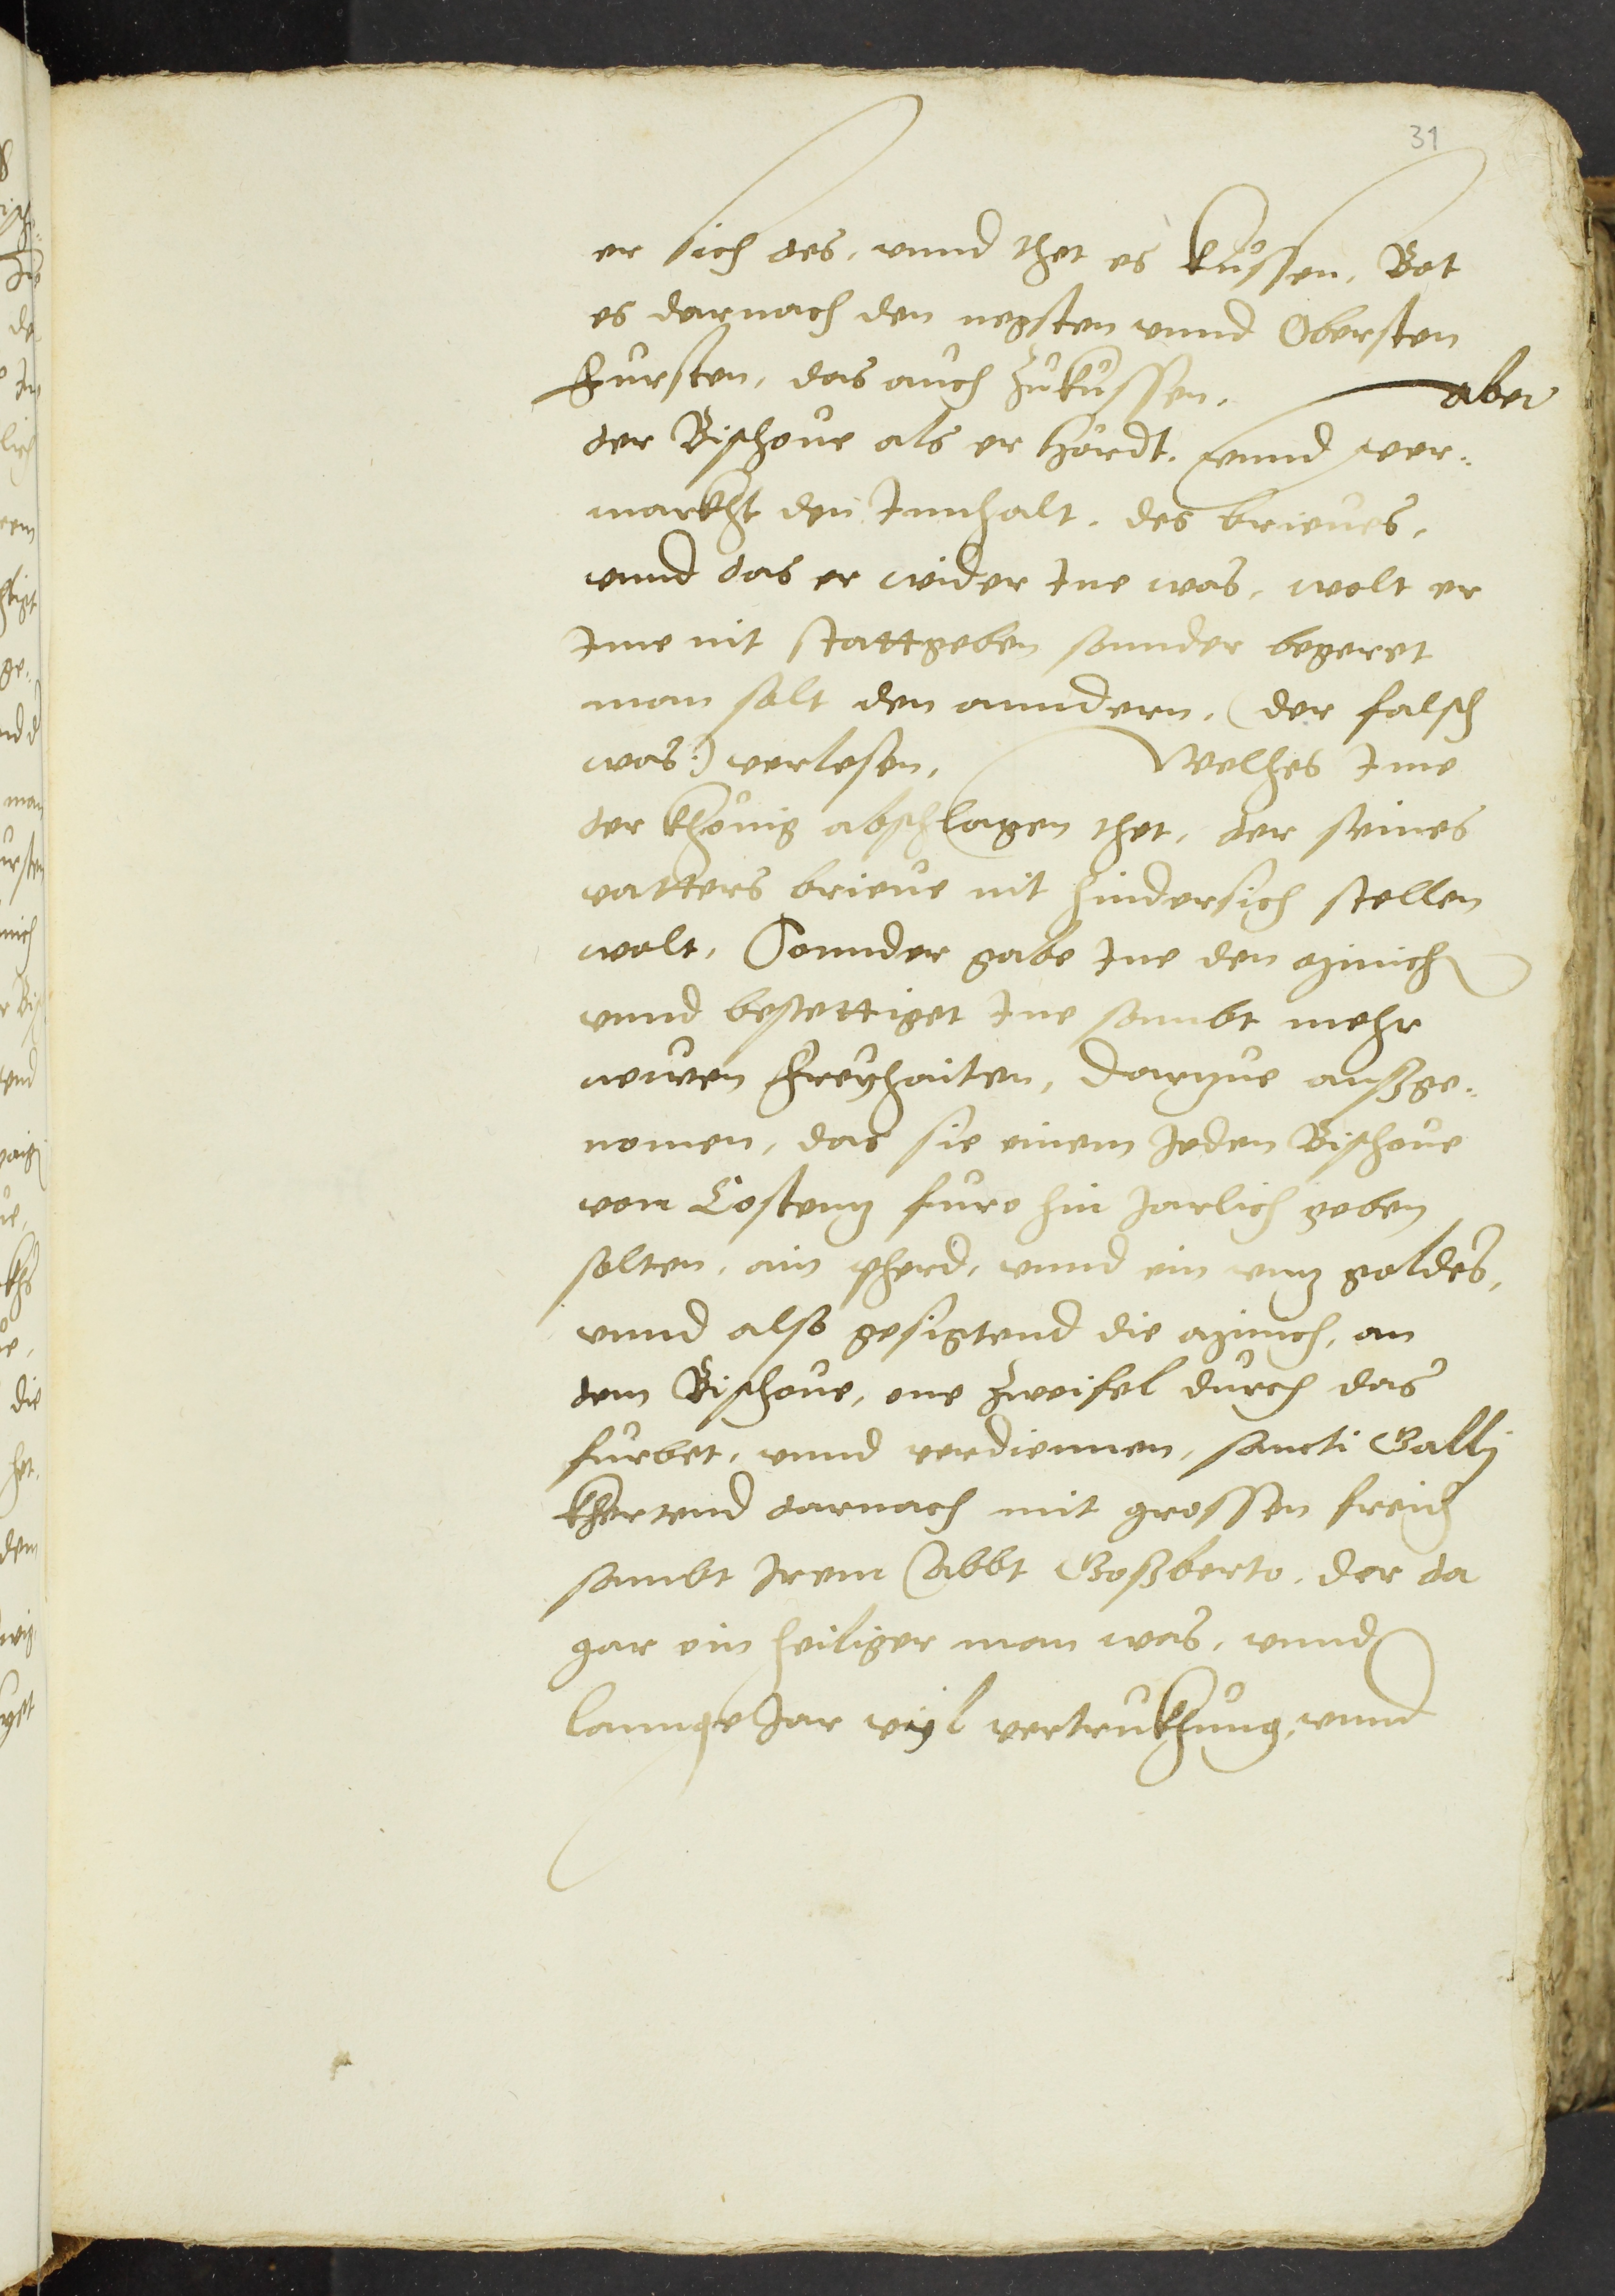 31
er sich des, vnnd thet es küssen, Bot
es darnach den negsten vnnd Obersten
Fursten, das auch zukussen. aber
der Bischoue als er hördt. vnnd ver-
markht den Innhalt, des brieues,
vnnd das er wider Ine was, wolt er
Ime nit stattgeben sonnder begeret
man solt den anndern, (der falsch
was:) verlesen, Welches Ime
der khönig abschlagen thet, der seines
vatters brieue nit hindersich stellen
wolt, Sonnder gabe Ine den münich
vnnd bestettiget Ine sambt mehr
newen Freyhaiten, darynne außge-
nomen, das sie einem Jeden Bischoue
von Costentz furo hin Jarlich geben
solten, ain pherd, vnnd ein vntz goldes,
vnnd also gesigtend die münich, an
dem Bischoue, one Zweifel durch das
furbet, vnnd verdiennen, sancti Galli
khertend darnach mit grossen freid
sambt Irem Abbt Goßberto, der da
gar ein heiliger man was, vnnd
lannge Jar vyl vertrukhung, vnnd